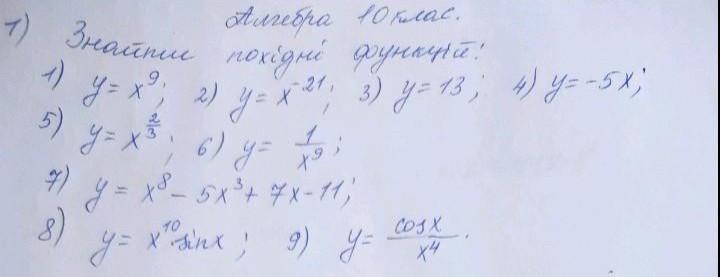 Алгебра 10 клас.
1) Знайти похідні функцій:
1) y = x⁹; 2) y = x⁻²¹; 3) y = 13; 4) y = -5x;
5) y = x^(2/3); 6) y = 1/x⁹;
7) y = x⁸ - 5x³ + 7x - 11;
8) y = x¹⁰·sinx; 9) y = cosx/x⁴.